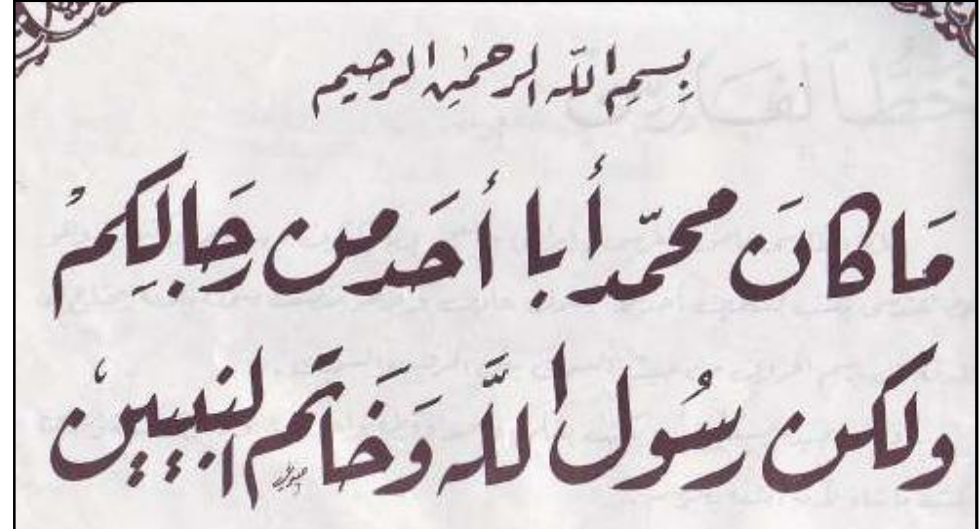 بِسمِ اللّه الرحمٰن الرحيم
مَا كانَ محمّد أبا أحَد من رجَالِكمْ
ولكن رسُول اللَّه وَخَاتم النبيين